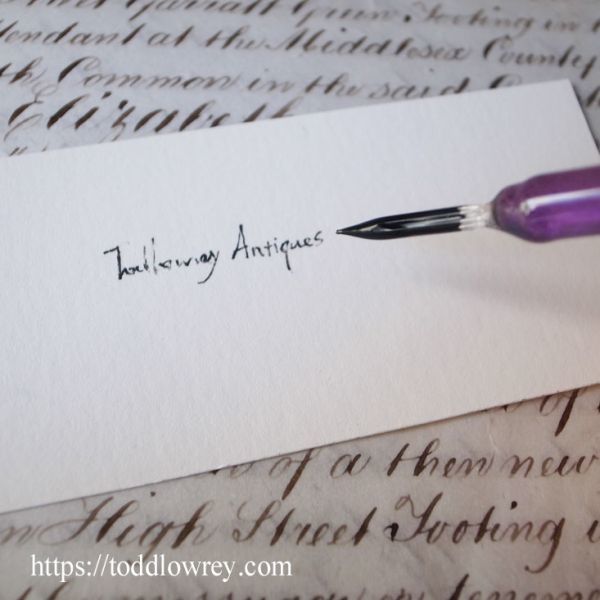 Garratt Green Tooting in
endant at the Middlesex County
th Common in the said
Elizabeth
Toddlowrey Antiques
of
of a then new
n High Street Tooting
https://toddlowrey.com
messuage or tenemen